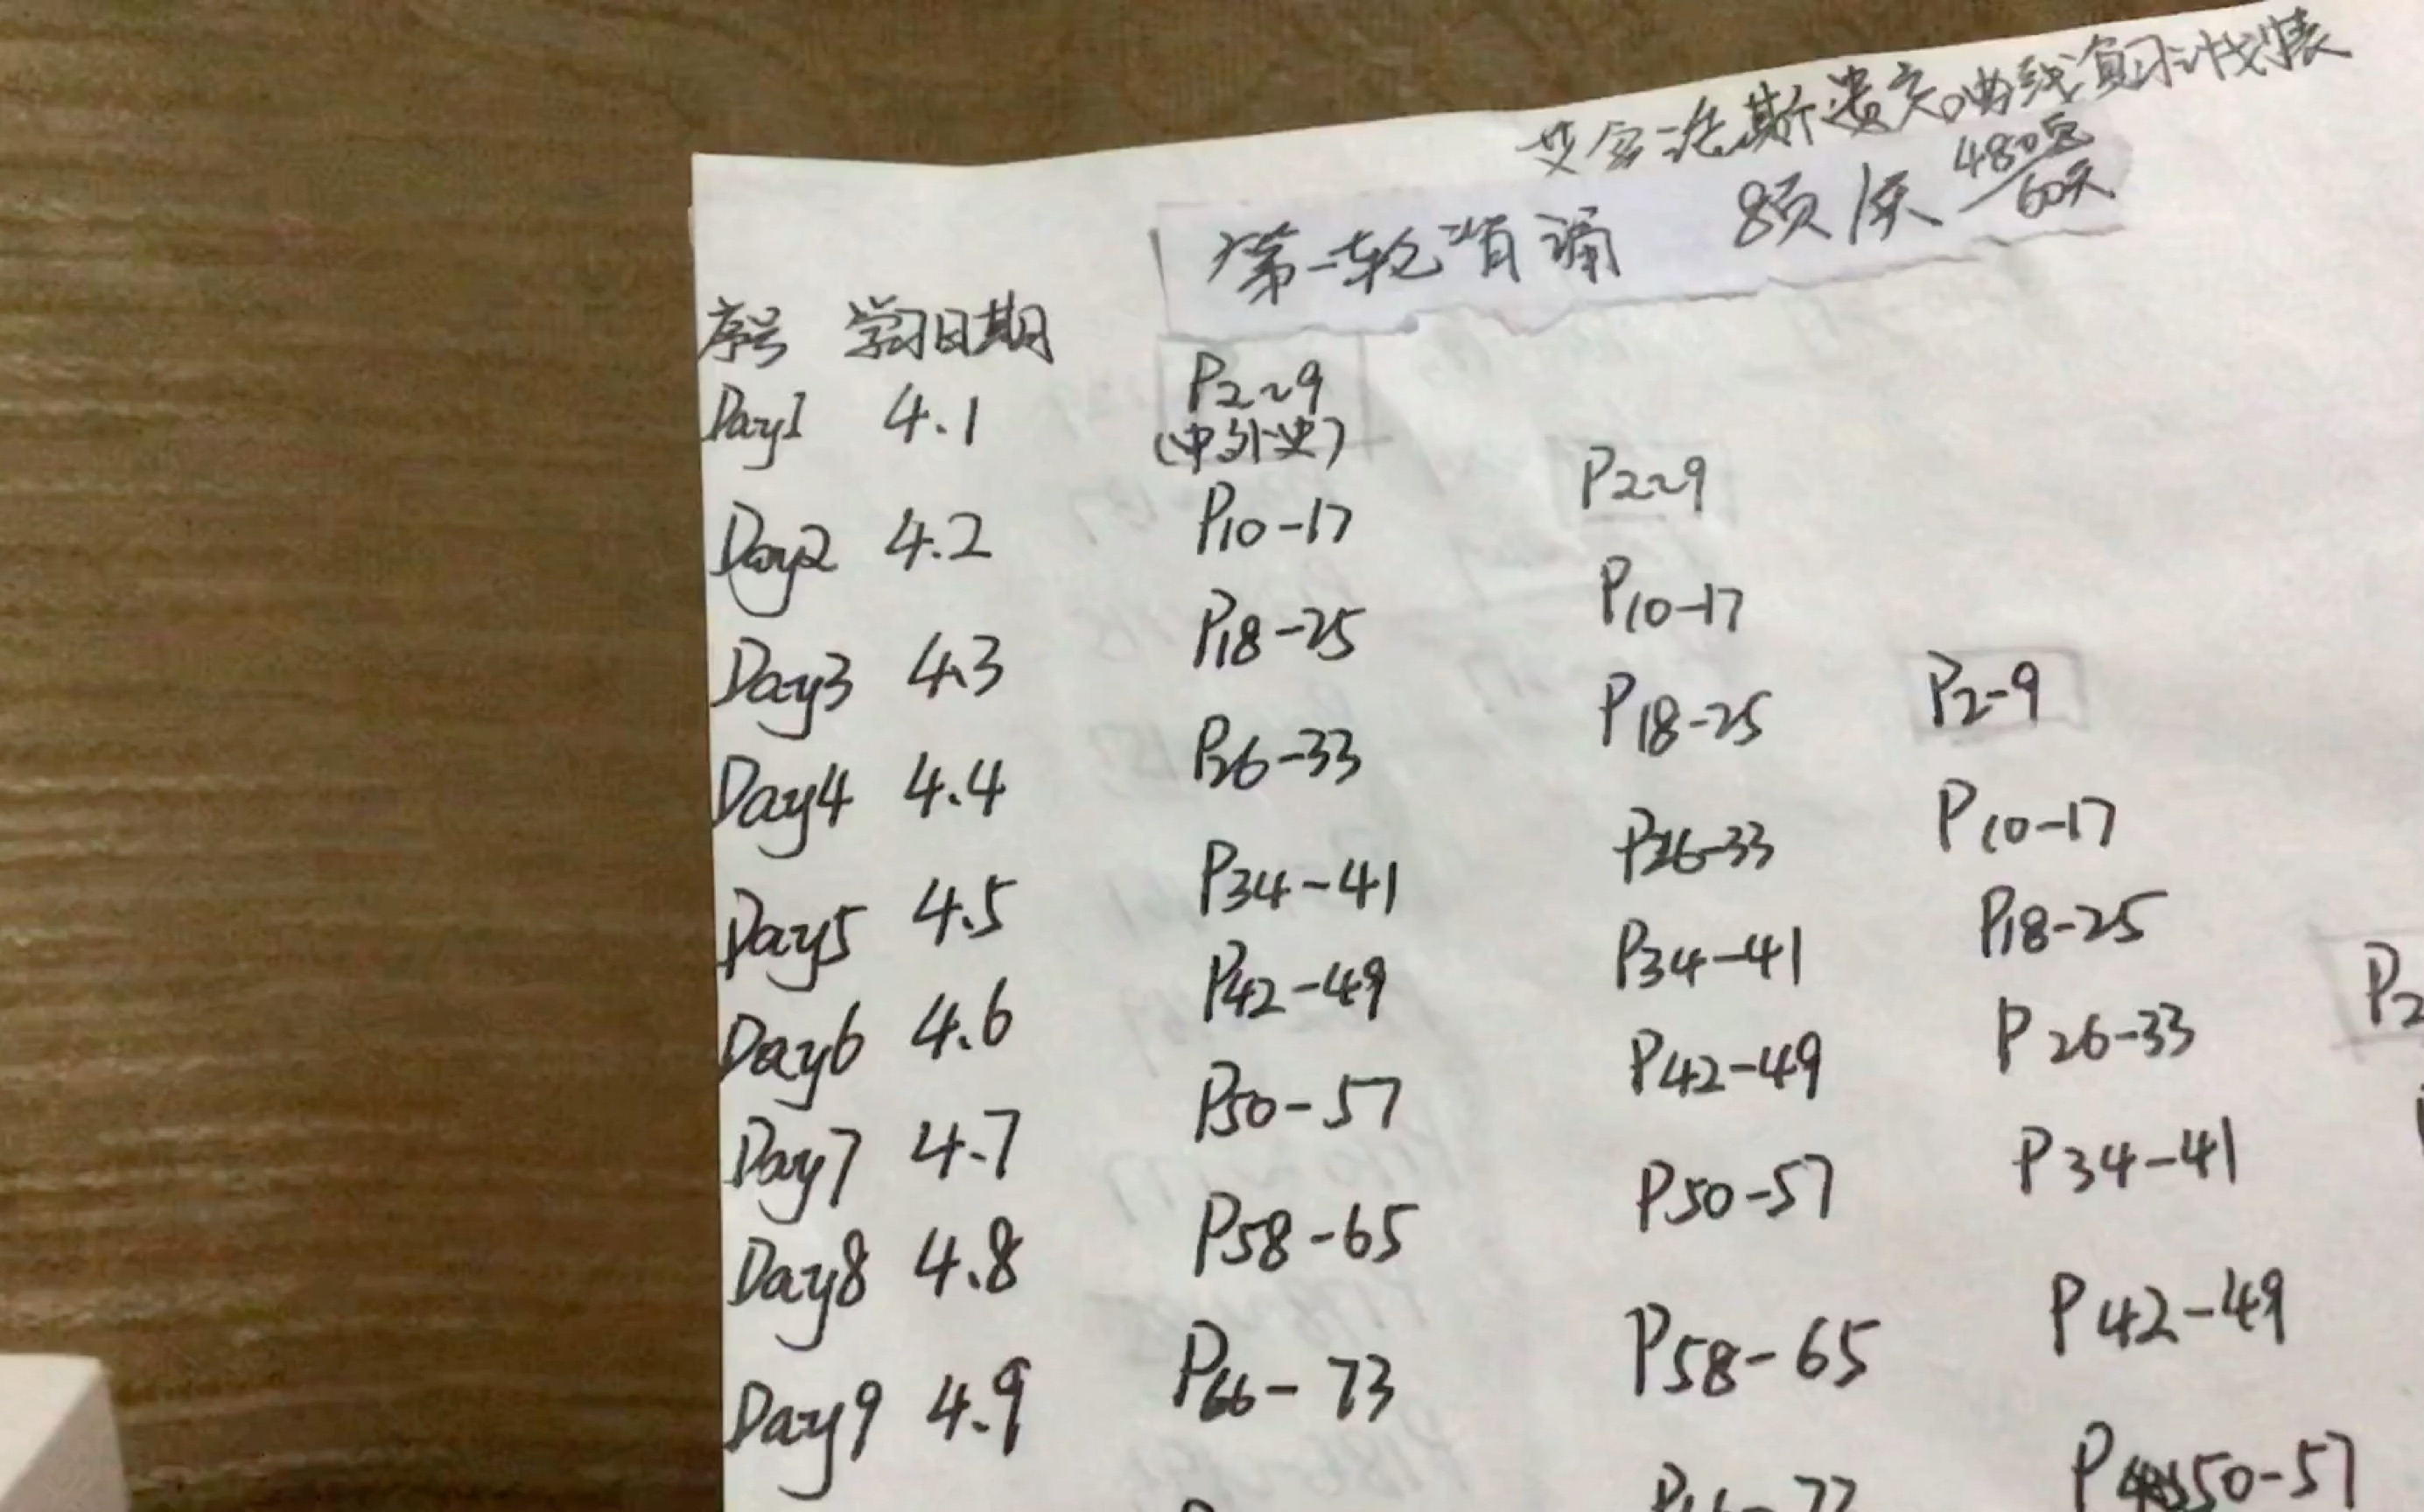 艾宾浩斯遗忘曲线复习计划表
第一轮背诵 8页/天 480页/60天
序号 学习日期
Day1 4.1 P2~9
(中外史)
Day2 4.2 P10-17 P2~9
Day3 4.3 P18-25 P10-17
Day4 4.4 P26-33 P18-25 P2-9
Day5 4.5 P34-41 P26-33 P10-17
Day6 4.6 P42-49 P34-41 P18-25
Day7 4.7 P50-57 P42-49 P26-33 P2
Day8 4.8 P58-65 P50-57 P34-41
Day9 4.9 P66-73 P58-65 P42-49
50-57